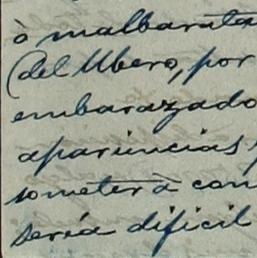 à malbarata
(del Ubero, por
embarazado
apariencias,
someter à con
sería dificil